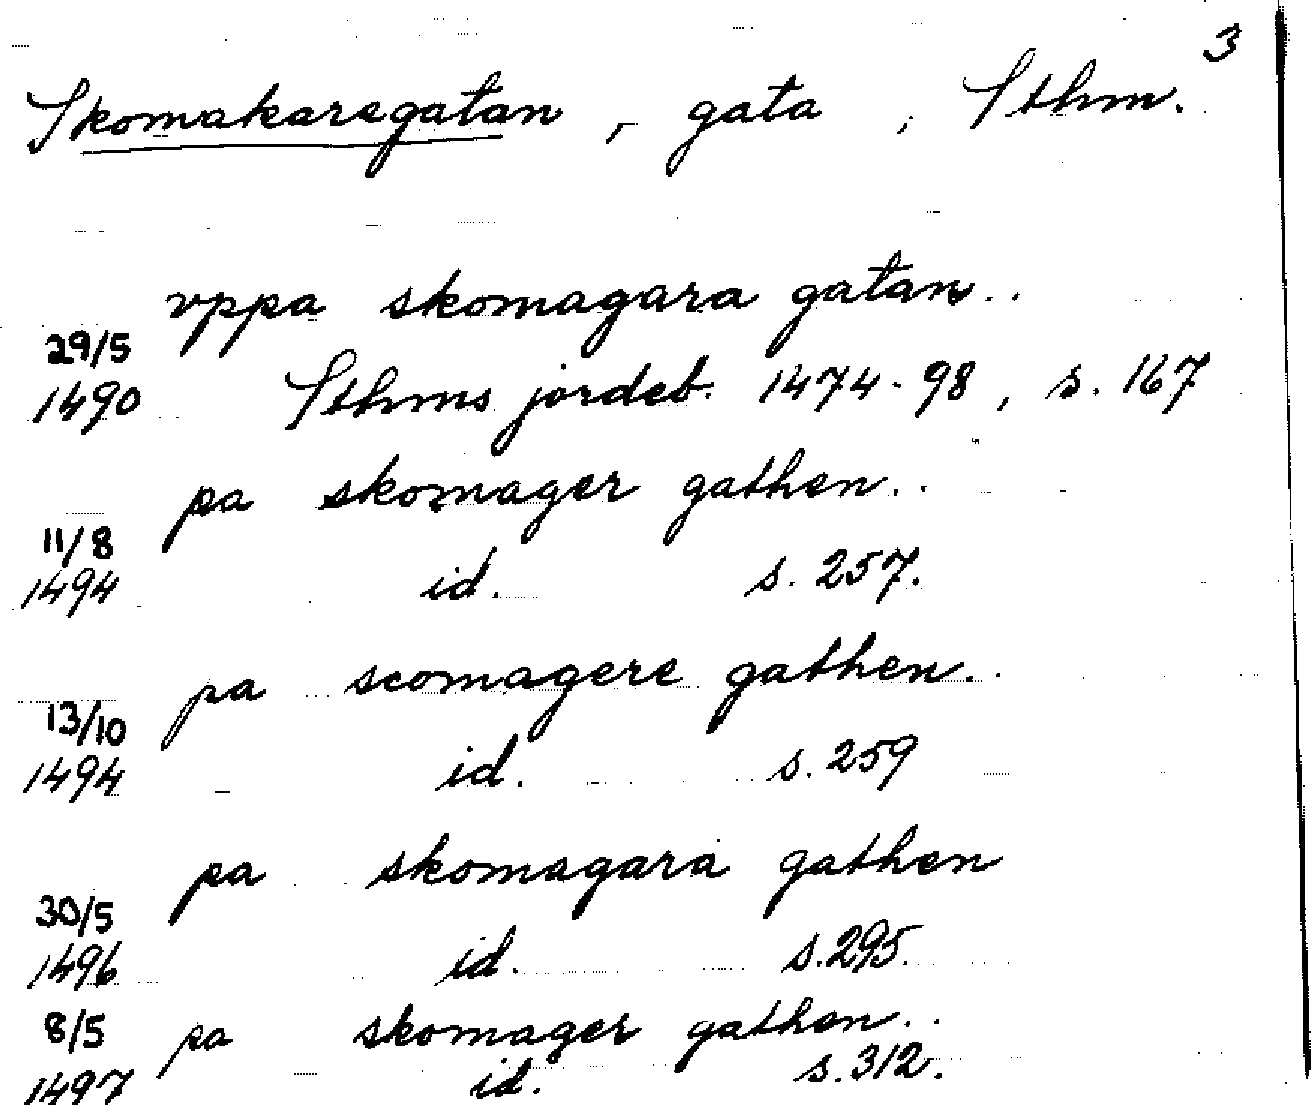 3
Skomakaregatan, gata, Sthm.
vppa skomagara gatan..
29/5
1490 Sthms jordeb. 1474-98, s. 167
pa skomager gathen..
11/8
1494 id. s. 257.
pa scomagere gathen..
13/10
1494 id. s. 259
pa skomagara gathen
30/5
1496 id. s. 295.
8/5 pa skomager gathen..
1497 id. s. 312.